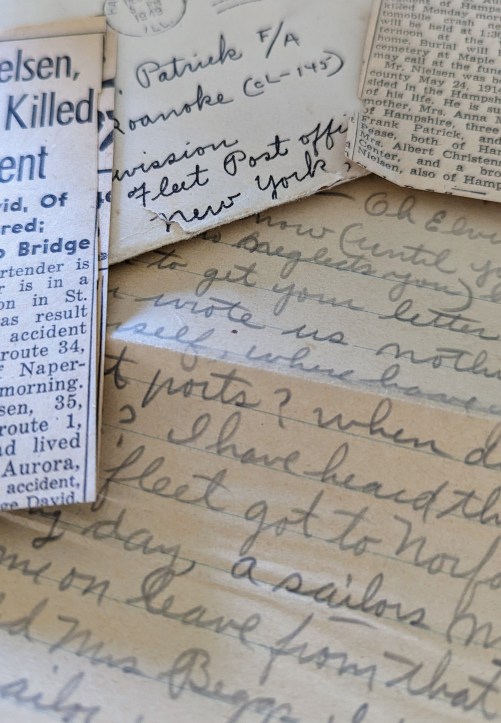 elsen,
Killed
ent
vid, Of
red;
o Bridge
rtender is
r is in a
on in St.
as result
accident
route 34,
f Naper-
morning.
sen, 35,
route 1,
ad lived
Aurora,
accident,
ge David,
Patrick F/A
Roanoke (CL-145)
Division
Fleet Post offi
New York
killed Monday
tomobile crash
will be held at 1:30
ternoon at the
home. Burial will
cemetery at Maple
may call at the fune
Mr. Nielsen was
county May 24, 191
sided in the Hampsh
of his life. He is su
mother, Mrs. Anna M
of Hampshire, three
Frank Patrick, and
ease, both of Ha
Mrs. Albert Christen
Center, and a bro
Nielsen, also of Ham
Oh El
now (until y
neglects you)
to get your letter
wrote us noth
self, where have
t ports? when d
? I have heard th
fleet got to Norf
day, a sailors M
me on leave from that
d Mrs
sailor